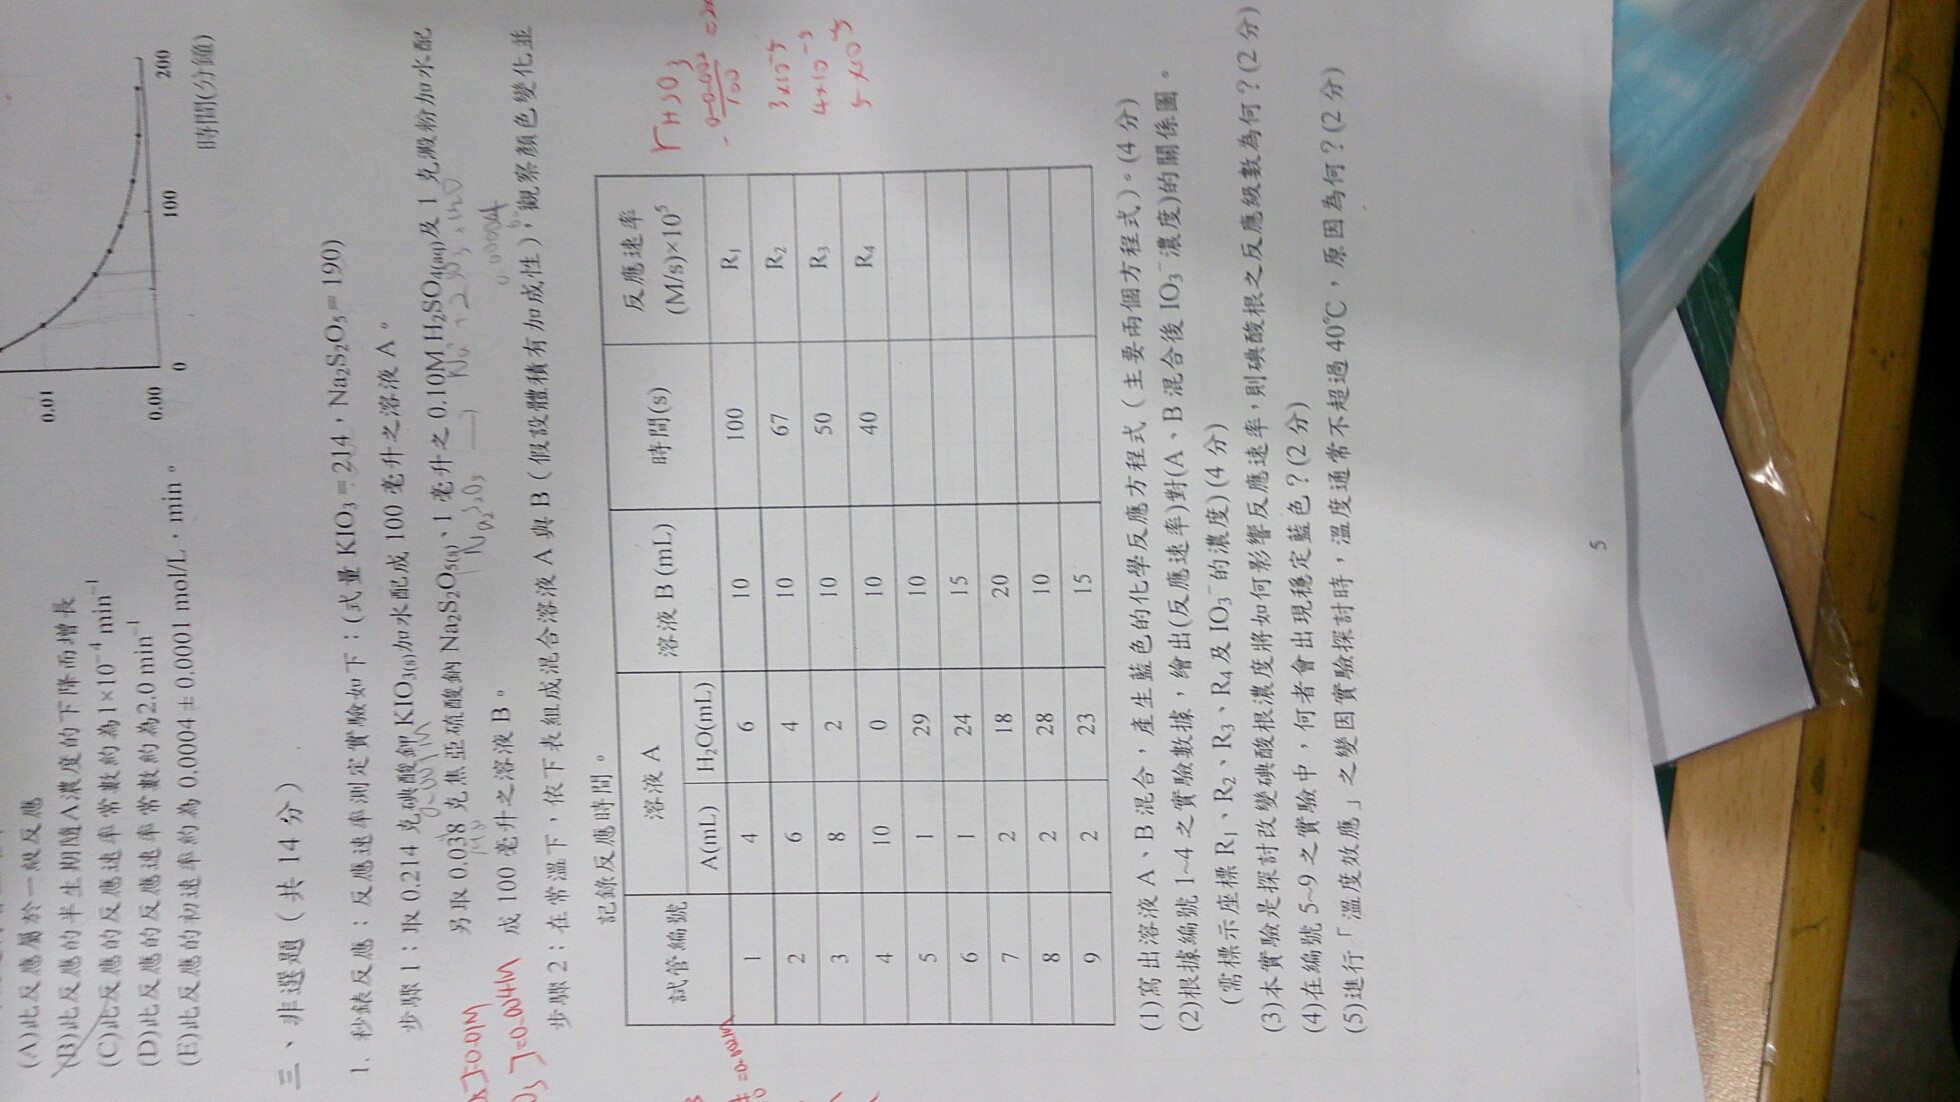 0.01
0.00
0
100
200
時間(分鐘)
(A)此反應屬於一級反應
(B)此反應的半生期隨A濃度的下降而增長
(C)此反應的反應速率常數約為1×10⁻⁴ min⁻¹
(D)此反應的反應速率常數約為2.0 min⁻¹
(E)此反應的初速率約為 0.0004 ± 0.0001 mol/L．min。
三、非選題（共 14 分）
1. 秒錶反應：反應速率測定實驗如下：(式量 KIO₃ = 214，Na₂S₂O₅ = 190)
步驟 1：取 0.214 克碘酸鉀 KIO₃(s)加水配成 100 毫升之溶液 A。
另取 0.038 克焦亞硫酸鈉 Na₂S₂O₅(s)、1 毫升之 0.10M H₂SO₄(aq)及 1 克澱粉加水配
成 100 毫升之溶液 B。
步驟 2：在常溫下，依下表組成混合溶液 A 與 B（假設體積有加成性），觀察顏色變化並
記錄反應時間。
試管編號 溶液 A 溶液 B (mL) 時間(s) 反應速率 (M/s)×10⁵
A(mL) H₂O(mL)
1 4 6 10 100 R₁
2 6 4 10 67 R₂
3 8 2 10 50 R₃
4 10 0 10 40 R₄
5 1 29 10
6 1 24 15
7 2 18 20
8 2 28 10
9 2 23 15
(1)寫出溶液 A、B 混合，產生藍色的化學反應方程式（主要兩個方程式）。(4 分)
(2)根據編號 1~4 之實驗數據，繪出(反應速率)對(A、B 混合後 IO₃⁻濃度)的關係圖。
(需標示座標 R₁、R₂、R₃、R₄ 及 IO₃⁻的濃度)(4 分)
(3)本實驗是探討改變碘酸根濃度將如何影響反應速率，則碘酸根之反應級數為何？(2 分)
(4)在編號 5~9 之實驗中，何者會出現穩定藍色？(2 分)
(5)進行「溫度效應」之變因實驗探討時，溫度通常不超過 40℃，原因為何？(2 分)
5
]=0.01M
]=0.004M
=0.002M
rHSO₃
3×10⁻⁵
4×10⁻⁵
5×10⁻⁵
Na₂S₂O₅
0.0004